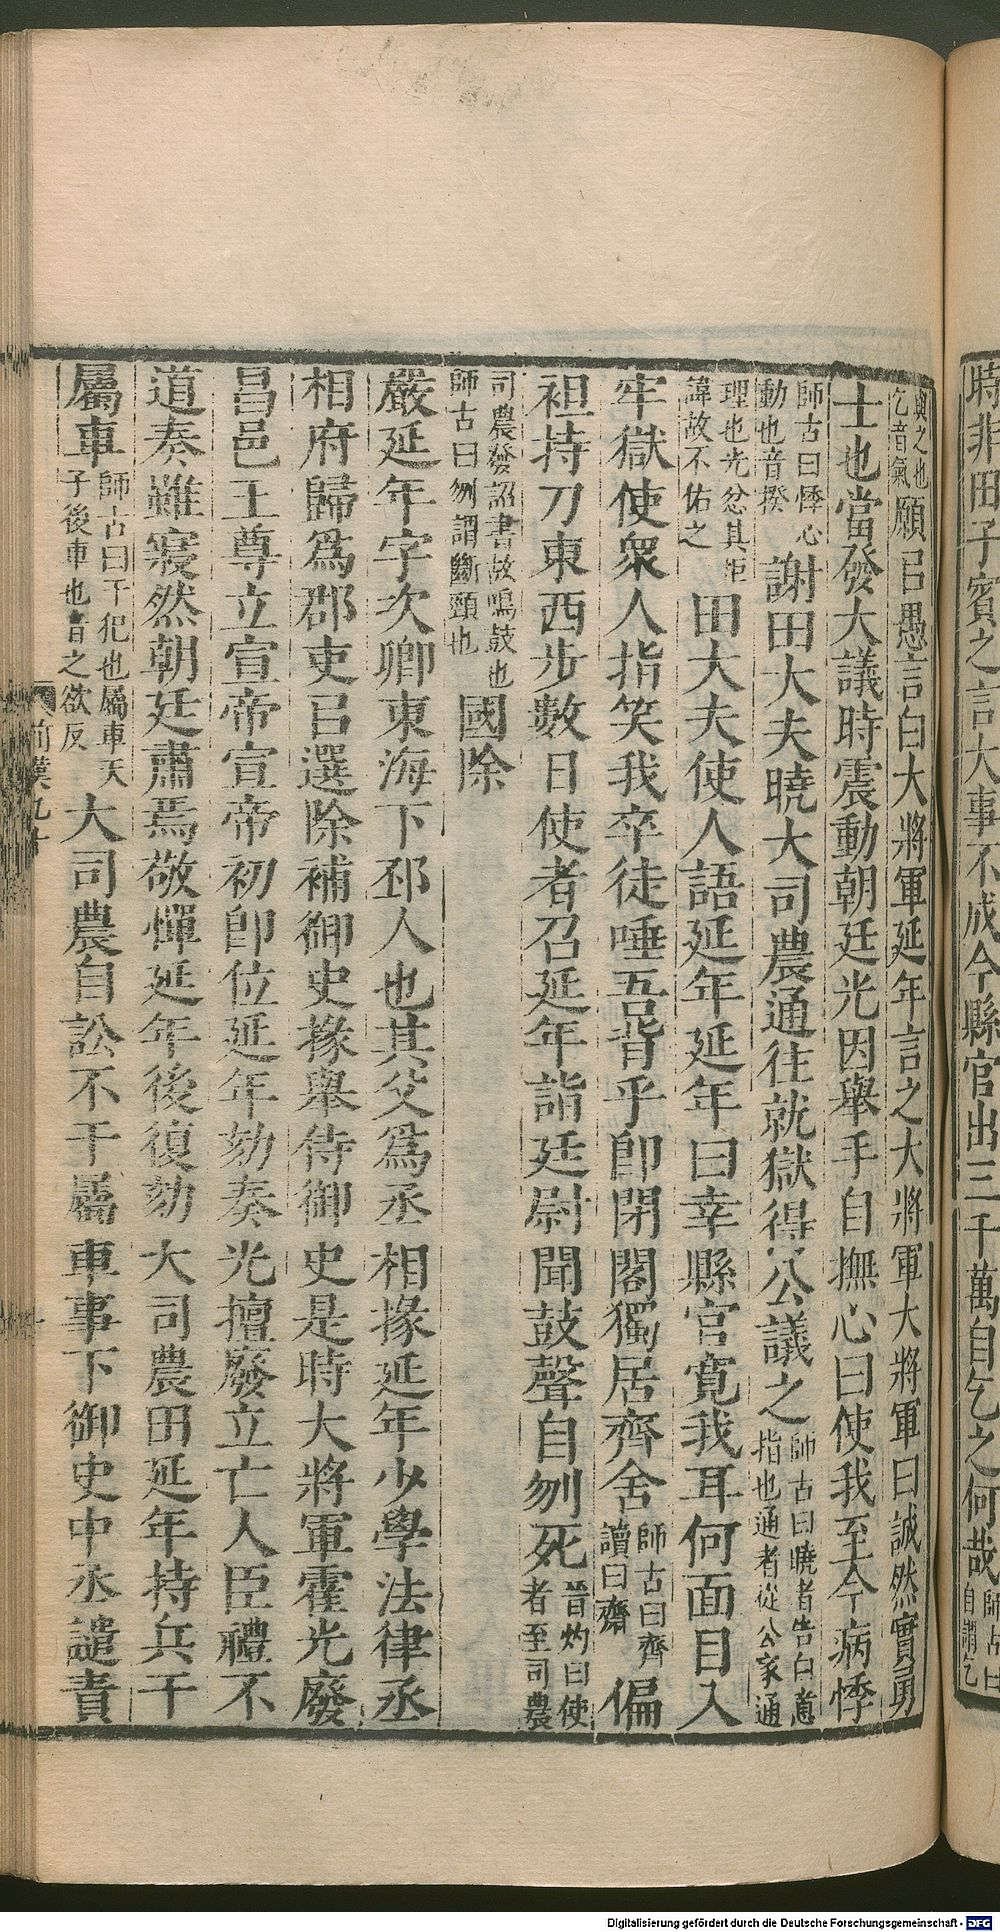 時非田子賓之言大事不成今縣官出三千萬自乞之何哉師古曰自謂乞
與之也乞音氣願㠯愚言白大將軍延年言之大將軍大將軍曰誠然實勇
士也當發大議時震動朝廷光因舉手自撫心曰使我至今病悸
師古曰悸心動也音揆謝田大夫曉大司農通往就獄得公議之師古曰曉者告白意指也通者從公家通
理也光忿其拒諱故不佑之田大夫使人語延年延年曰幸縣官寬我耳何面目入
牢獄使衆人指笑我卒徒唾吾背乎卽閉閤獨居齊舍師古曰齊讀曰齋偏
袒持刀東西步數日使者召延年詣廷尉聞鼓聲自刎死晉灼曰使者至司農
司農發詔書故鳴鼓也師古曰刎謂斷頸也國除
嚴延年字次卿東海下邳人也其父爲丞相掾延年少學法律丞
相府歸爲郡吏㠯選除補御史掾舉侍御史是時大將軍霍光廢
昌邑王尊立宣帝宣帝初卽位延年劾奏光擅廢立亡人臣禮不
道奏雖寢然朝廷肅焉敬憚延年後復劾大司農田延年持兵干
屬車師古曰干犯也屬車天子後車也音之欲反大司農自訟不干屬車事下御史中丞譴責
前漢九十
Digitalisierung gefördert durch die Deutsche Forschungsgemeinschaft - DFG